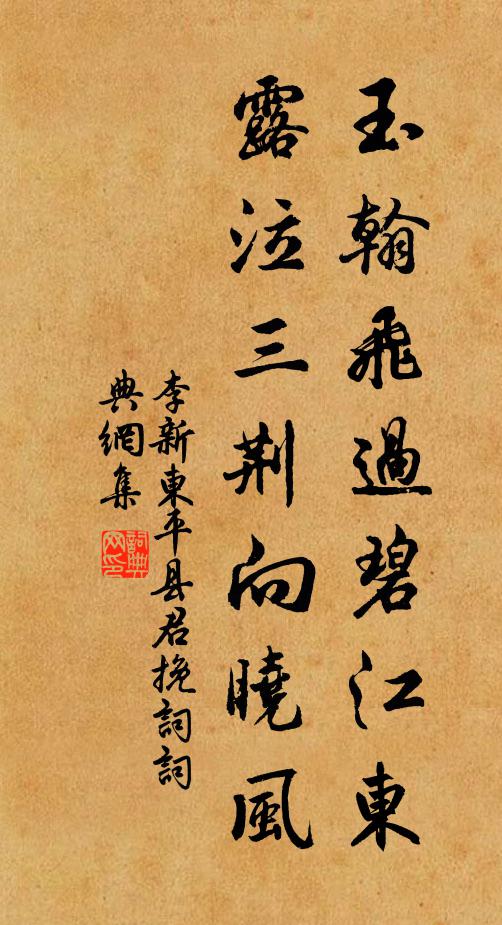 玉翰飛過碧江東
露泣三荆向曉風
李新東平县君挽詞詞
典網集
詞典网印